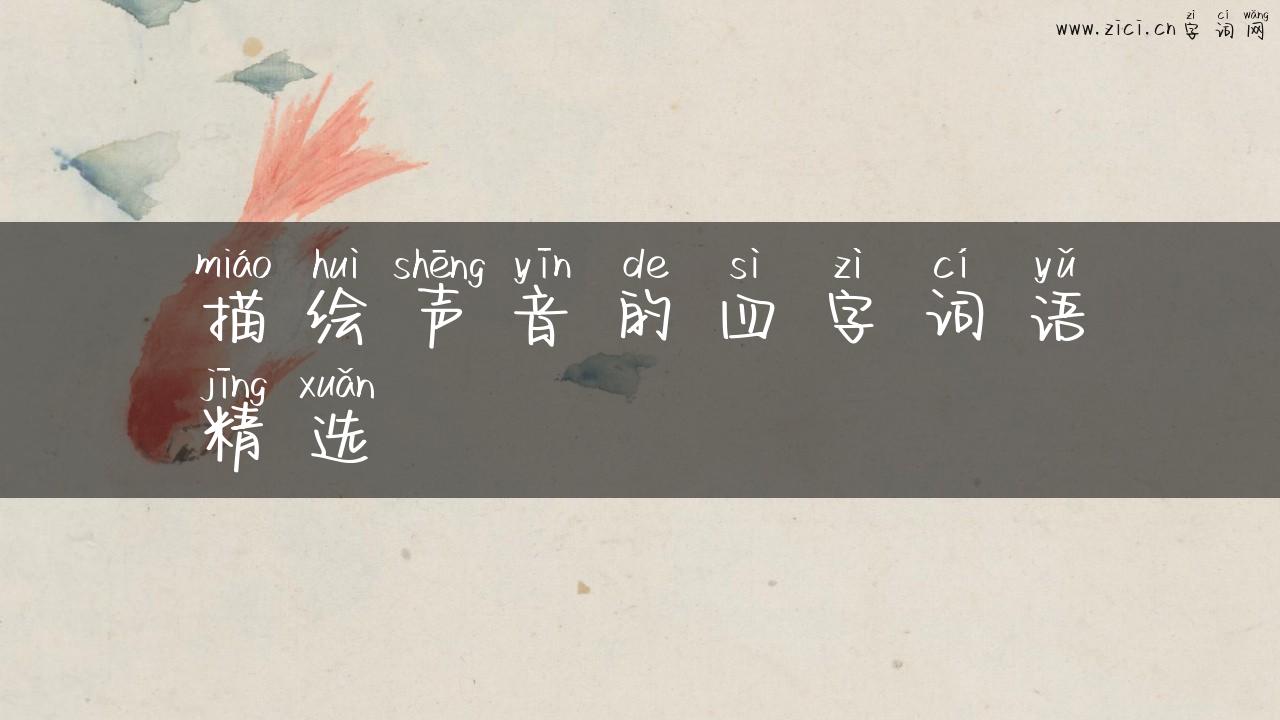 zì cí wǎng
www.zici.cn 字词网
miáo huì shēng yīn de sì zì cí yǔ
描绘声音的四字词语
jīng xuǎn
精选